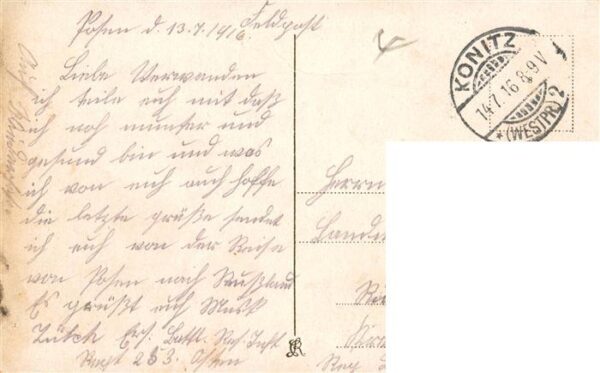 Posen d. 13.7.1916
Feldpost
Liebe Verwanden
ich teile euch mit daß
ich noch munter und
gesund bin und was
ich von euch auch hoffe
die letzte grüße sendet
ich euch von der Reise
von Posen nach Rußland
Es grüßt euch
Ers. Batl. Res. Inft
Regt 253. Osten
Auf
KONITZ
14.7.16 8-9V
*(WESTPR.)2
Herrn